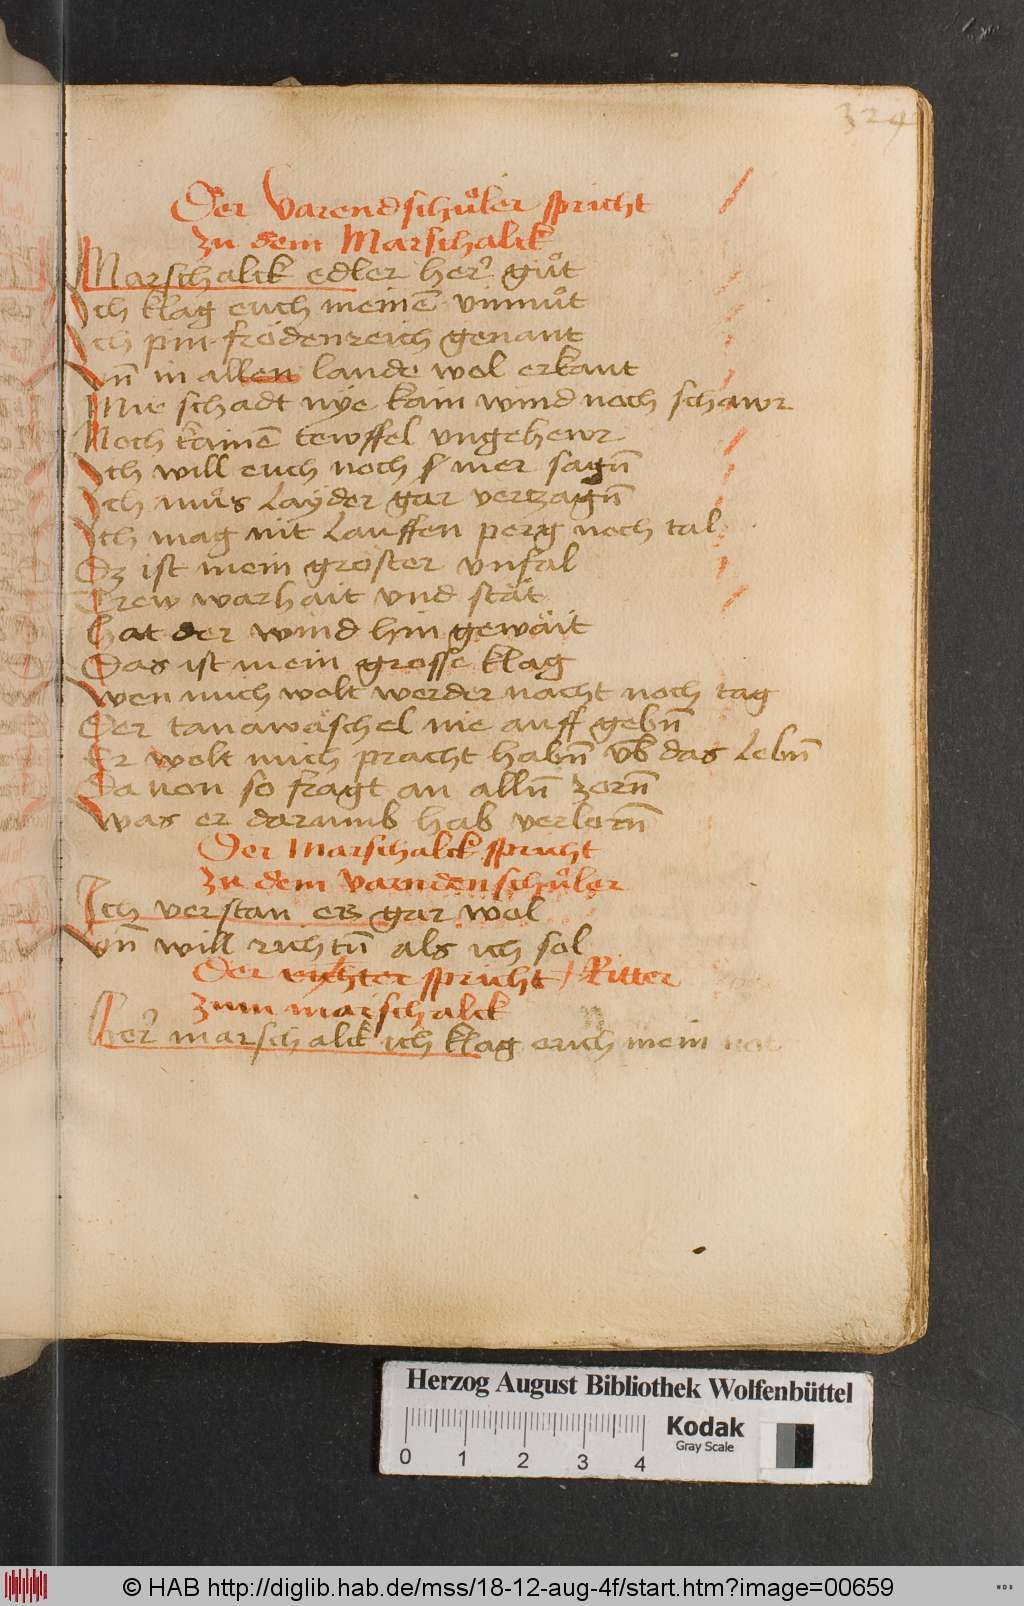 324
Der varend schuͦler spricht
zu dem Marschalck
Marschalck edler her̉ guͦt
Ich klag euch meinē vnmuͦt
Ich pin frödenreich genant
Vn̄ in allen lande wol erkant
Mir schadt nye kain wind noch schawr
Noch kainē tewffel vngehewr
Ich will euch noch mer sagn̄
Ich muͦs layder gar vertzagn̄
Ich mag nit lauffen perg noch tal
Dz ist mein groster vnfal
Trew warhait vnd stät
Hat der wind hin gewäit
Das ist mein grosse klag
Wen mich wolt werder nacht noch tag
Der tanawäschel nie auff gebn̄
Er wolt mich pracht habn̄ vb das lebn̄
Da von so fragt an alln̄ zorn̄
Was er darumb hab verlorn̄
Der Marschalck spricht
zu dem varnden schuͦler
Ich verstan es gar wol
Vn̄ will richtn̄ als ich sol
Der richter spricht / Ritter
zum marschalck
Her̉ marschalck ich klag euch mein not
Herzog August Bibliothek Wolfenbüttel
0 1 2 3 4
Kodak
Gray Scale
© HAB http://diglib.hab.de/mss/18-12-aug-4f/start.htm?image=00659